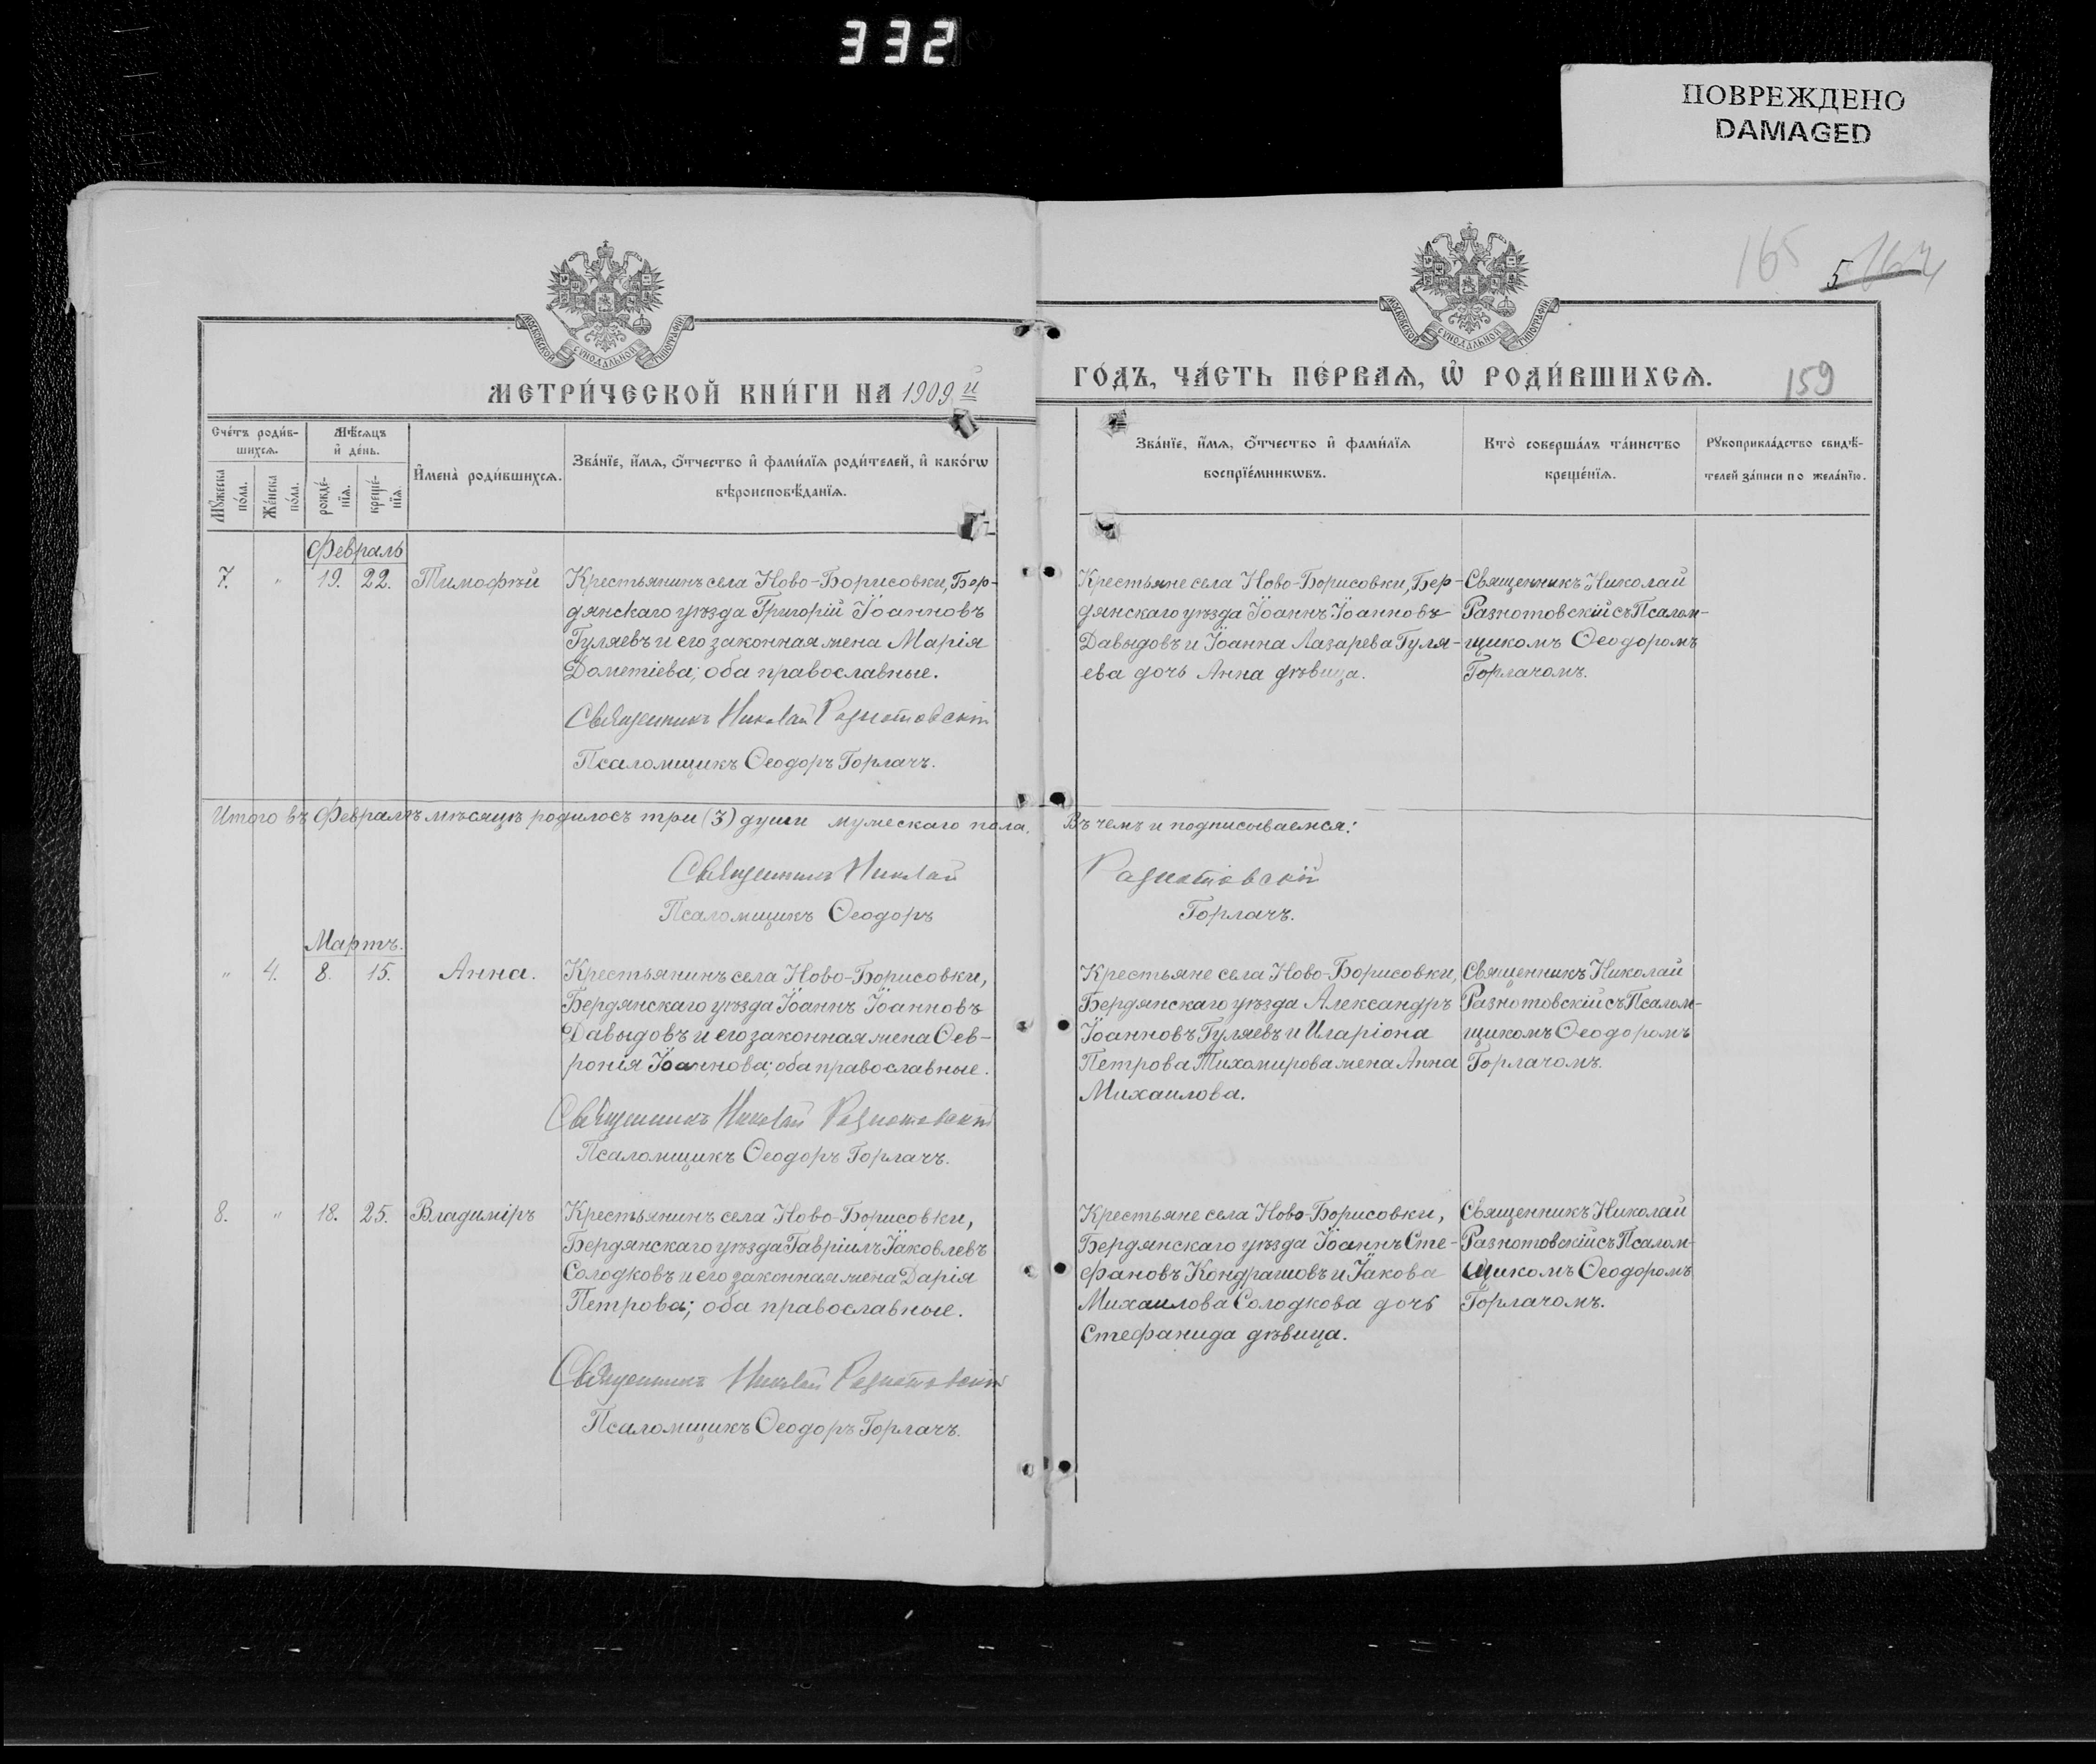 332
ПОВРЕЖДЕНО
DAMAGED
165
5
159
МОСКОВСКОЙ СѴНОДАЛЬНОЙ ТИПОГРАФІИ
МОСКОВСКОЙ СѴНОДАЛЬНОЙ ТИПОГРАФІИ
МЕТРИ́ЧЕСКОЙ КНИ́ГИ НА 1909 й
ГО́ДЪ, ЧА́СТЬ ПЕ́РВАѦ, Ѡ РОДИ́ВШИХСѦ.
Сче́тъ роди́в-
шихсѧ.
Мꙋ́жеска
по́ла.
Же́нска
по́ла.
Мѣ́сѧцъ
и҆ де́нь.
рожде́-
нїѧ.
креще́-
нїѧ.
И҆мена̀ роди́вшихсѧ.
Зва́нїе, и҆́мѧ, ѻ҆́тчество и҆ фами́лїѧ роди́телей, и҆ како́гѡ
вѣроисповѣ́данїѧ.
Зва́нїе, и҆́мѧ, ѻ҆́тчество и҆ фами́лїѧ
воспрїе́мникѡвъ.
Кто̀ соверша́лъ та́инство
креще́нїѧ.
Рꙋкоприкла́дство свидѣ́-
телей за́писи по жела́нїю.
Февраль
7. " 19. 22. Тимофѣй
Крестьянинъ села Ново-Борисовки, Бер-
дянскаго уѣзда Григорій Іоанновъ
Гуляевъ и его законная жена Марія
Дометіева; оба православные.
Священникъ Николай Разнотовскій
Псаломщикъ Ѳеодоръ Горлачъ.
Крестьяне села Ново-Борисовки, Бер-
дянскаго уѣзда Іоаннъ Іоанновъ
Давыдовъ и Іоанна Лазарева Гуля-
ева дочь Анна дѣвица.
Священникъ Николай
Разнотовскій съ Псалом-
щикомъ Ѳеодоромъ
Горлачомъ.
Итого въ Февралѣ мѣсяцѣ родилось три (3) души мужескаго пола. Въ чемъ и подписываемся:
Священникъ Николай Разнотовскій
Псаломщикъ Ѳеодоръ Горлачъ.
Мартъ.
" 4. 8. 15. Анна.
Крестьянинъ села Ново-Борисовки,
Бердянскаго уѣзда Іоаннъ Іоанновъ
Давыдовъ и его законная жена Ѳев-
ронія Іоаннова; оба православные.
Священникъ Николай Разнотовскій
Псаломщикъ Ѳеодоръ Горлачъ.
Крестьяне села Ново-Борисовки,
Бердянскаго уѣзда Александръ
Іоанновъ Гуляевъ и Иларіона
Петрова Тихомирова жена Анна
Михаилова.
Священникъ Николай
Разнотовскій съ Псалом-
щикомъ Ѳеодоромъ
Горлачомъ.
8. " 18. 25. Владиміръ
Крестьянинъ села Ново-Борисовки,
Бердянскаго уѣзда Гавріилъ Іаковлевъ
Солодковъ и его законная жена Дарія
Петрова; оба православные.
Священникъ Николай Разнотовскій
Псаломщикъ Ѳеодоръ Горлачъ.
Крестьяне села Ново-Борисовки,
Бердянскаго уѣзда Іоаннъ Сте-
фановъ Кондрашовъ и Іакова
Михаилова Солодкова дочь
Стефанида дѣвица.
Священникъ Николай
Разнотовскій съ Псалом-
щикомъ Ѳеодоромъ
Горлачомъ.